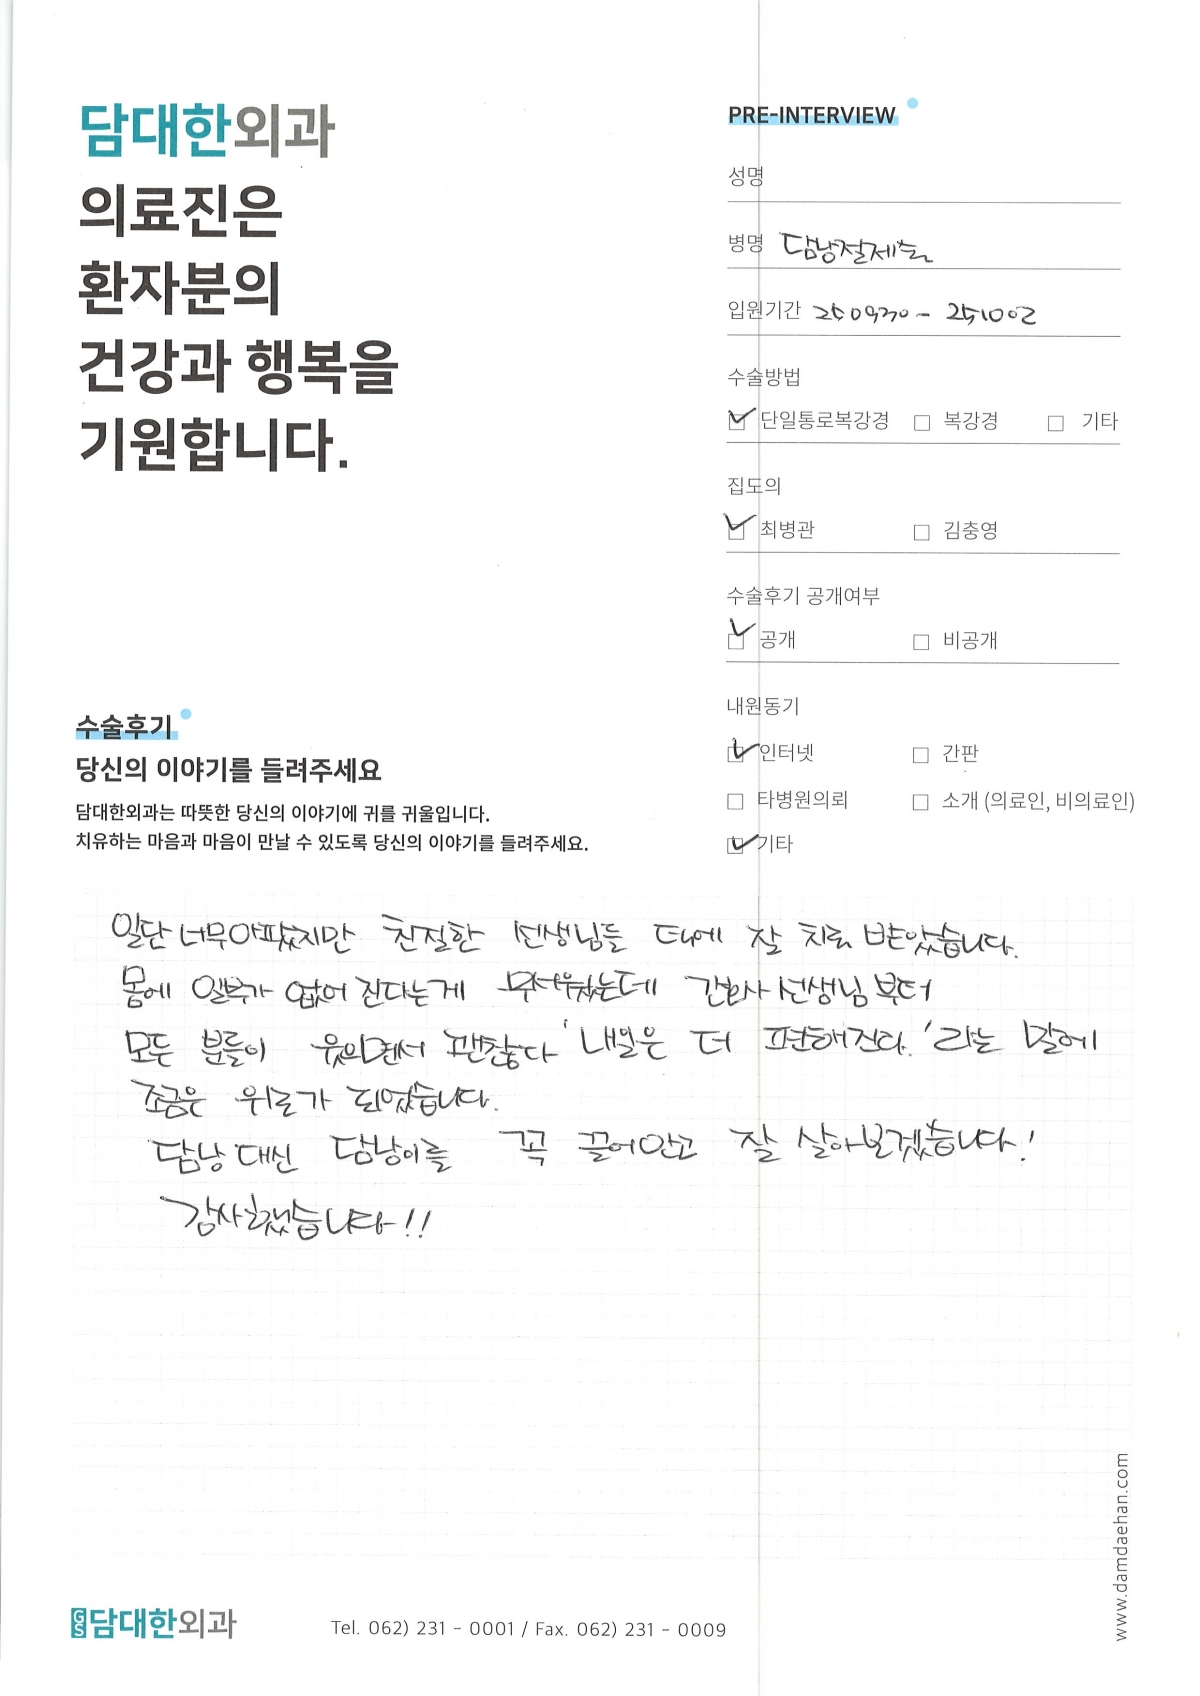 담대한외과
의료진은
환자분의
건강과 행복을
기원합니다.
PRE-INTERVIEW
성명
병명 담낭절제술
입원기간 250930 - 251002
수술방법
단일통로복강경 복강경 기타
집도의
최병관 김충영
수술후기 공개여부
공개 비공개
내원동기
인터넷 간판
타병원의뢰 소개 (의료인, 비의료인)
기타
수술후기
당신의 이야기를 들려주세요
담대한외과는 따뜻한 당신의 이야기에 귀를 귀울입니다.
치유하는 마음과 마음이 만날 수 있도록 당신의 이야기를 들려주세요.
일단 너무아팠지만 친절한 선생님들 덕에 잘 치료 받았습니다.
몸에 일부가 없어 진다는게 무서웠는데 간호사 선생님 부터
모든 분들이 웃으면서 괜찮다 '내일은 더 편해진다.'라는 말에
조금은 위로가 되었습니다.
담낭 대신 담낭이를 꼭 끌어안고 잘 살아보겠습니다!
감사했습니다!!
www.damdaehan.com
GS 담대한외과
Tel. 062) 231 - 0001 / Fax. 062) 231 - 0009